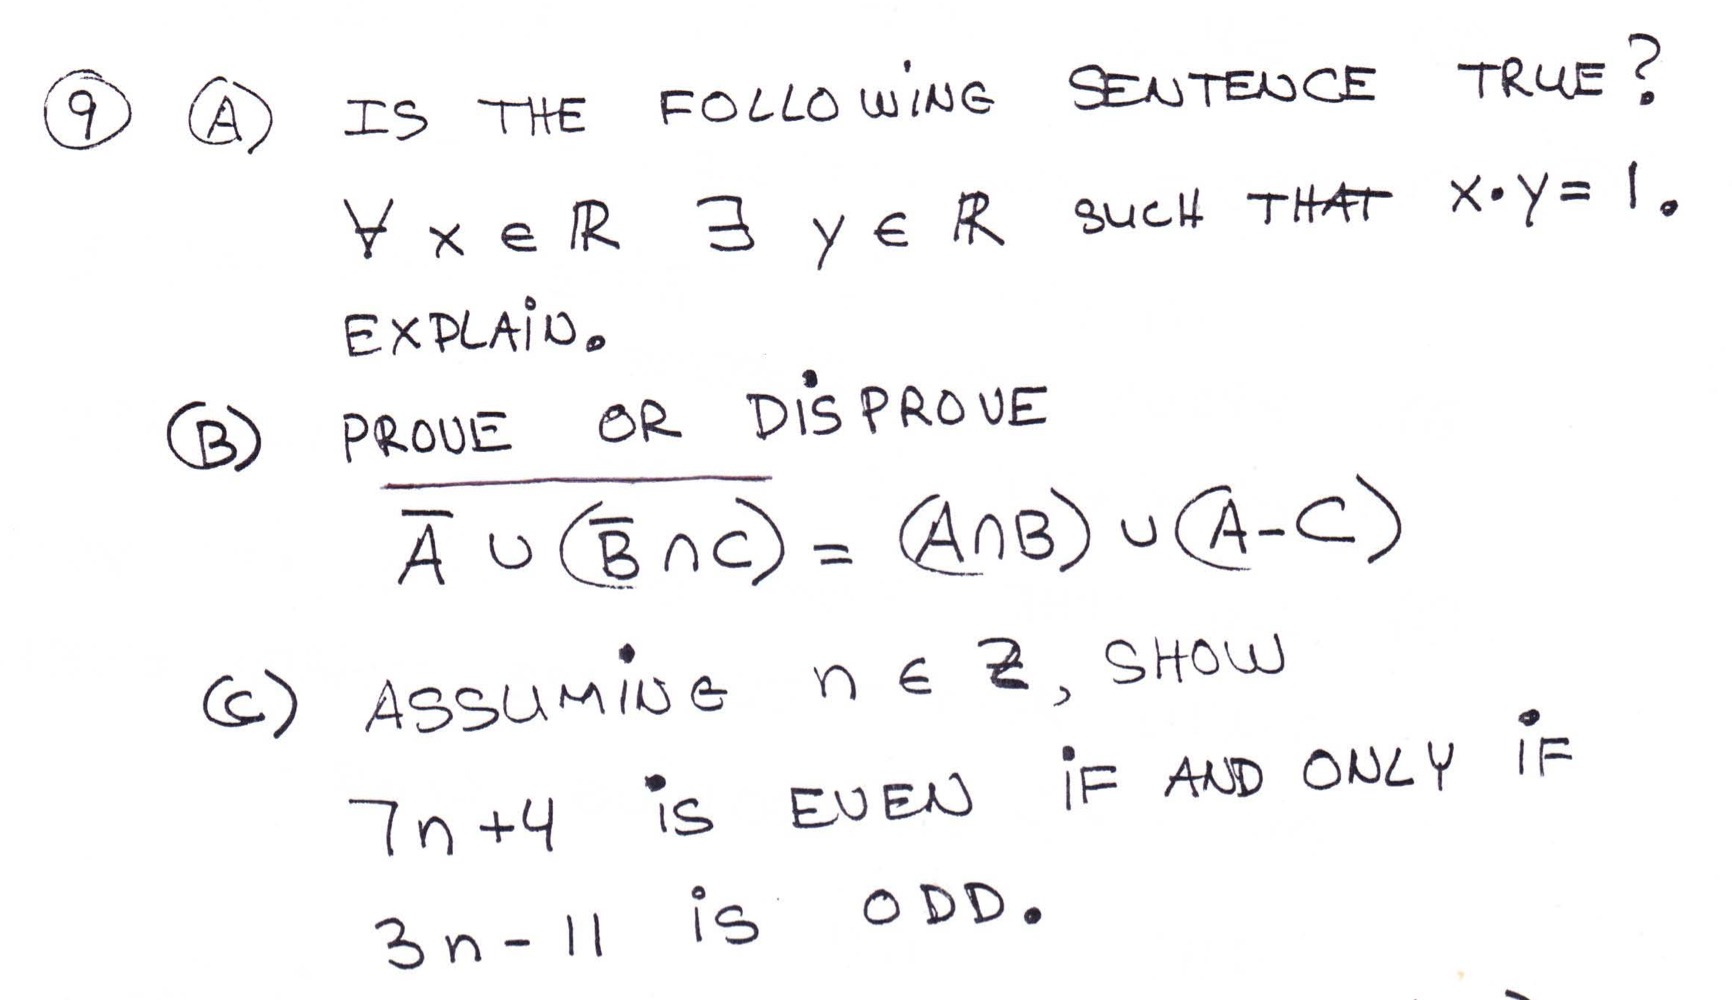 9 A IS THE FOLLOWING SENTENCE TRUE?
∀ x ∈ ℝ ∃ y ∈ ℝ SUCH THAT x·y = 1.
EXPLAIN.
(B) PROVE OR DISPROVE
A̅ ∪ (B̅ ∩ C) = (A∩B) ∪ (A-C)
(C) ASSUMING n ∈ ℤ, SHOW
7n+4 is EVEN iF AND ONLY iF
3n-11 is ODD.